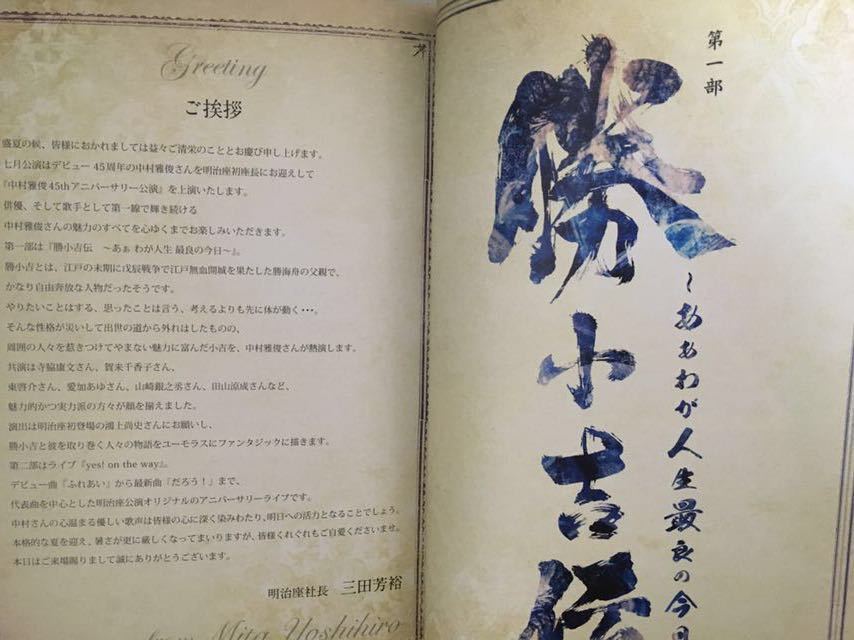 Greeting
ご挨拶
盛夏の候、皆様におかれましては益々ご清栄のこととお慶び申し上げます。
七月公演はデビュー45周年の中村雅俊さんを明治座初座長にお迎えして
『中村雅俊45thアニバーサリー公演』を上演いたします。
俳優、そして歌手として第一線で輝き続ける
中村雅俊さんの魅力のすべてを心ゆくまでお楽しみいただきます。
第一部は『勝小吉伝　～あぁ わが人生 最良の今日～』。
勝小吉とは、江戸の末期に戊辰戦争で江戸無血開城を果たした勝海舟の父親で、
かなり自由奔放な人物だったそうです。
やりたいことはする、思ったことは言う、考えるよりも先に体が動く・・・。
そんな性格が災いして出世の道から外れはしたものの、
周囲の人々を惹きつけてやまない魅力に富んだ小吉を、中村雅俊さんが熱演します。
共演は寺脇康文さん、賀来千香子さん、
東啓介さん、愛加あゆさん、山崎銀之丞さん、田山涼成さんなど、
魅力的かつ実力派の方々が顔を揃えました。
演出は明治座初登場の鴻上尚史さんにお願いし、
勝小吉と彼を取り巻く人々の物語をユーモラスにファンタジックに描きます。
第二部はライブ『yes! on the way』。
デビュー曲『ふれあい』から最新曲『だろう！』まで、
代表曲を中心とした明治座公演オリジナルのアニバーサリーライブです。
中村さんの心温まる優しい歌声は皆様の心に深く染みわたり、明日への活力となることでしょう。
本格的な夏を迎え、暑さが更に厳しくなってまいりますが、皆様くれぐれもご自愛くださいませ。
本日はご来場賜りまして誠にありがとうございます。
明治座社長　三田芳裕
from Mita Yoshihiro
第一部
勝小吉伝
～あぁわが人生最良の今日